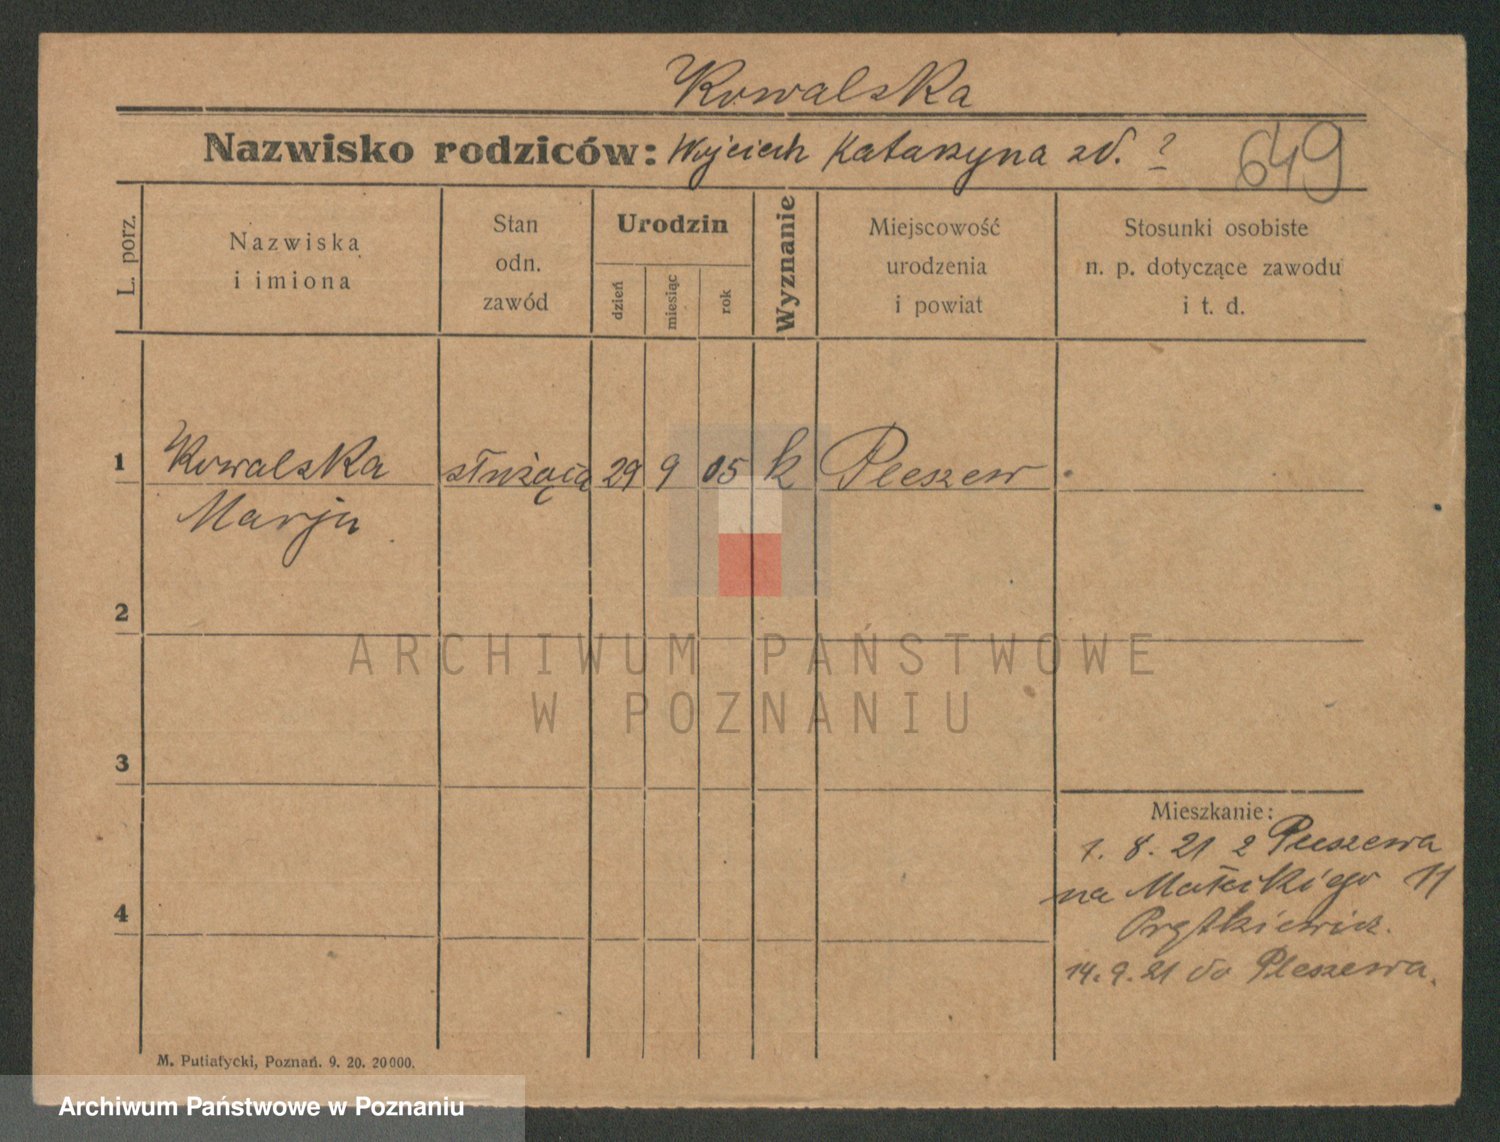 Kowalska
Nazwisko rodziców: Wojciech Katarzyna zd. ?
649
L. porz.
Nazwiska
i imiona
Stan
odn.
zawód
Urodzin
dzień
miesiąc
rok
Wyznanie
Miejscowość
urodzenia
i powiat
Stosunki osobiste
n. p. dotyczące zawodu
i t. d.
1 Kowalska służąca 29 9 05 k Pleszew
Marja
2
ARCHIWUM PAŃSTWOWE
W POZNANIU
3
Mieszkanie:
1. 8. 21 z Pleszewa
na Małeckiego 11
4
14. 9. 21 do Pleszewa.
M. Putiatycki, Poznań. 9. 20. 20000.
Archiwum Państwowe w Poznaniu